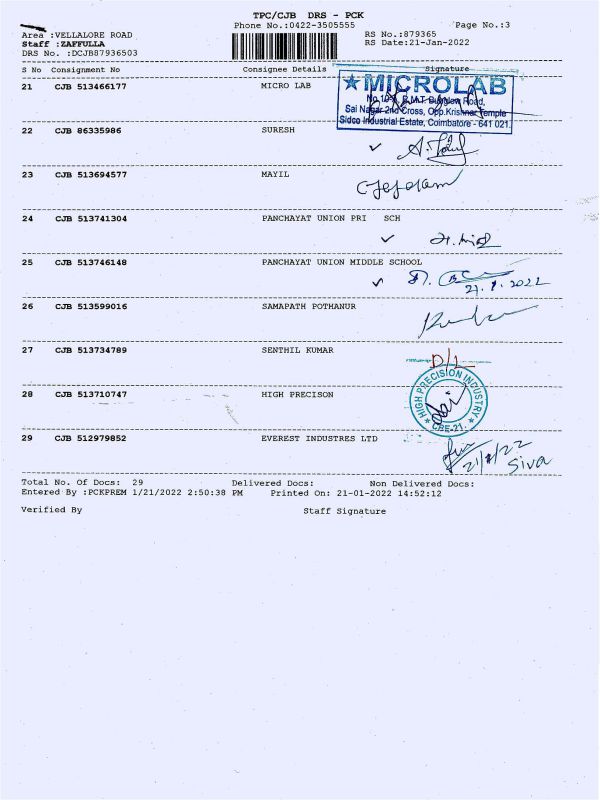 TPC/CJB DRS - PCK
Phone No.:0422-3505555
Page No.:3
Area :VELLALORE ROAD
Staff :ZAFFULLA
DRS No. :DCJB87936503
RS No.:879365
RS Date:21-Jan-2022
S No Consignment No Consignee Details Signature
21 CJB 513466177 MICRO LAB
★ MICROLAB
Sai Nagar 2nd Cross, Opp.Krishnar Temple
Sidco Industrial Estate, Coimbatore - 641 021.
22 CJB 86335986 SURESH
✓
23 CJB 513694577 MAYIL
24 CJB 513741304 PANCHAYAT UNION PRI SCH
✓
25 CJB 513746148 PANCHAYAT UNION MIDDLE SCHOOL
✓ 21.1.2022
26 CJB 513599016 SAMAPATH POTHANUR
27 CJB 513734789 SENTHIL KUMAR
D/L
28 CJB 513710747 HIGH PRECISON
HIGH PRECISION INDUSTRY
★ CBE-21. ★
29 CJB 512979852 EVEREST INDUSTRES LTD
21/1/22
Siva
Total No. Of Docs: 29 Delivered Docs: Non Delivered Docs:
Entered By :PCKPREM 1/21/2022 2:50:38 PM Printed On: 21-01-2022 14:52:12
Verified By Staff Signature